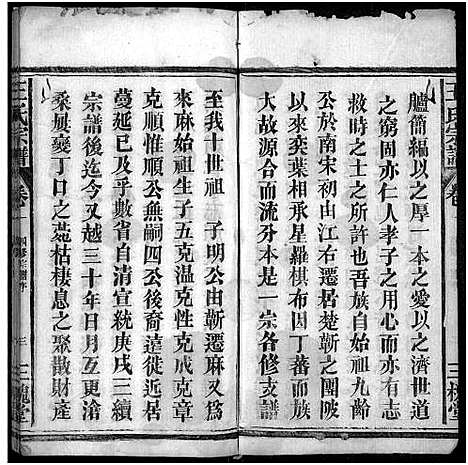 王氏宗譜
三槐堂
臚簡編以之厚一本之愛以之濟世道
之窮固亦仁人孝子之用心而亦
救時之士之所許也吾族自九齡
公於南宋初由江右遷楚蘄之團陂
星羅棋布因丁蕃而族
大故源合而流分本是一宗各修支譜
至我十世祖 子明公由蘄遷麻又為
來麻始祖生子五溫克性克成克章
克順惟克公無嗣四公後裔遠徙近居
蔓延已及乎數省自清宣統庚戌三續
宗譜後迄今又越三十年日月互更滄
桑屢變丁口之蕃枯棲息之聚散財產
王氏宗譜
卷一
三
三槐堂